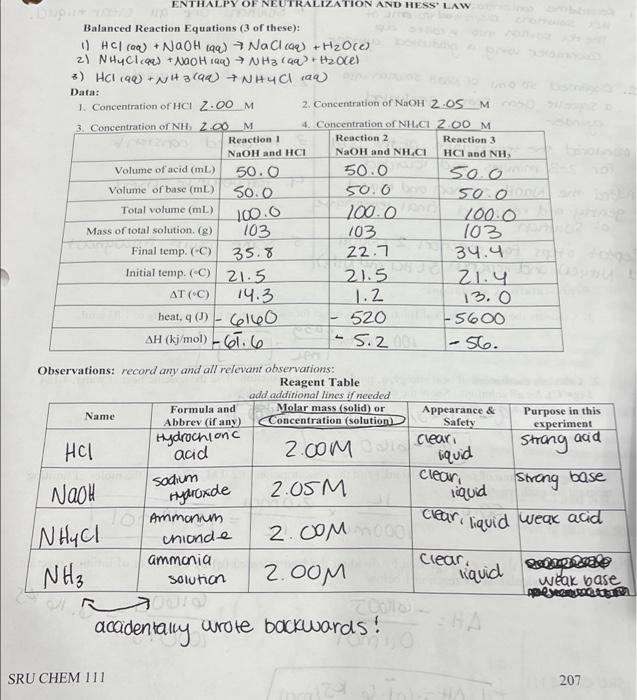 ENTHALPY OF NEUTRALIZATION AND HESS' LAW
Balanced Reaction Equations (3 of these):
1) HCl (aq) + NaOH (aq) → NaCl (aq) + H2O(l)
2) NH4Cl (aq) + NaOH (aq) → NH3 (aq) + H2O(l)
3) HCl (aq) + NH3(aq) → NH4Cl (aq)
Data:
1. Concentration of HCl 2.00 M 2. Concentration of NaOH 2.05 M
3. Concentration of NH3 2.00 M 4. Concentration of NH4Cl 2.00 M
Reaction 1 Reaction 2 Reaction 3
NaOH and HCl NaOH and NH4Cl HCl and NH3
Volume of acid (mL) 50.0 50.0 50.0
Volume of base (mL) 50.0 50.0 50.0
Total volume (mL) 100.0 100.0 100.0
Mass of total solution. (g) 103 103 103
Final temp. (°C) 35.8 22.7 34.4
Initial temp. (°C) 21.5 21.5 21.4
ΔT (°C) 14.3 1.2 13.0
heat, q (J) - 6160 - 520 -5600
ΔH (kj/mol) -61.6 - 5.2 - 56.
Observations: record any and all relevant observations:
Reagent Table
add additional lines if needed
Name Formula and Abbrev (if any) Molar mass (solid) or Concentration (solution) Appearance & Safety Purpose in this experiment
HCl Hydrochloric acid 2.00M clear, liquid strong acid
NaOH sodium Hydroxide 2.05M clear, liquid strong base
NH4Cl Ammonium chloride 2.00M clear, liquid weak acid
NH3 ammonia solution 2.00M clear, liquid weak base
accidentally wrote backwards!
SRU CHEM 111 207